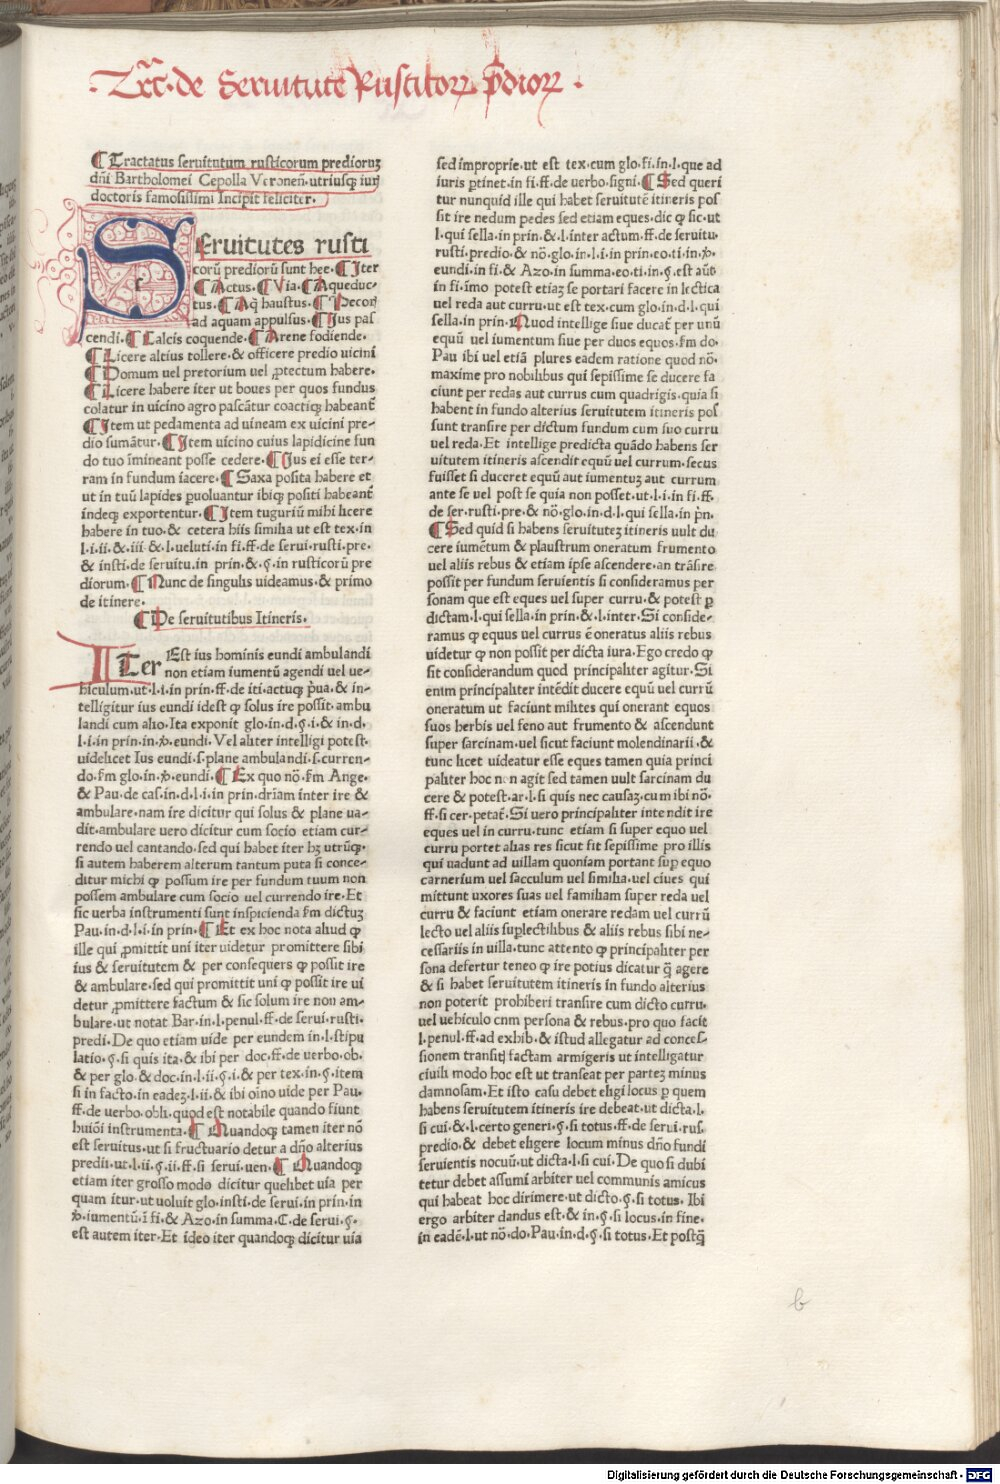 .Trac. de Seruitute Rusticoꝝ p̄dioꝝ.
¶Tractatus seruitutum rusticorum predioruꝫ
dñi Bartholomei Cepolla Veroneñ. utriusqꝫ iur̄
doctoris famosissimi Incipit feliciter.
Seruitutes rusti
corū prediorū sunt hee. ¶Iter
¶Actus. ¶Via. ¶Aqueduc-
tus. ¶Aq̄ haustus. ¶Pecor̄
ad aquam appulsus. ¶Ius pas
cendi. ¶Calcis coquende. ¶Arene fodiende.
¶Licere altius tollere. & officere predio uicini
¶Domum uel pretorium uel ꝓtectum habere.
¶Licere habere iter ut boues per quos fundus
colatur in uicino agro pascātur coactiqꝫ habeant̄
¶Item ut pedamenta ad uineam ex uicini pre-
dio sumātur. ¶Item uicino cuius lapidicine fun
do tuo īmineant posse cedere. ¶Ius ei esse ter-
ram in fundum iacere. ¶Saxa posita habere et
ut in tuū lapides ꝑuoluantur ibiqꝫ positi habeant̄
indeqꝫ exportentur. ¶Item tuguriū mihi licere
habere in tuo. & cetera hiis similia ut est tex. in
l. i. ii. & iii. & l. ueluti in fi. ff. de serui. rusti. pre.
& insti. de seruitu. in prin. & §. in rusticorū pre
diorum. ¶Nunc de singulis uideamus. & primo
de itinere.
¶De seruitutibus Itineris.
ITer Est ius hominis eundi ambulandi
non etiam iumentū agendi uel ue-
hiculum. ut. l. i. in prin. ff. de iti. actuqꝫ p̄ua. & in-
telligitur ius eundi idest ꝙ solus ire possit. ambu
landi cum alio. Ita exponit glo. in. d. §. i. & in. d.
l. i. in prin. in. ꝟ. eundi. Vel aliter intelligi potest.
uidelicet Ius eundi. s. plane ambulandi. s. curren-
do. fm̄ glo. in. ꝟ. eundi. ¶Ex quo nō. fm̄ Ange.
& Pau. de cas. in. d. l. i. in prin. dr̄iam inter ire &
ambulare. nam ire dicitur qui solus & plane ua-
dit. ambulare uero dicitur cum socio etiam cur-
rendo uel cantando. sed qui habet iter hꝫ utrūqꝫ.
si autem haberem alterum tantum puta si conce-
ditur michi ꝙ possum ire per fundum tuum non
possem ambulare cum socio uel currendo ire. Et
sic uerba instrumenti sunt inspicienda fm̄ dictuꝫ
Pau. in. d. l. i. in prin. ¶Et ex hoc nota aliud ꝙ
ille qui ꝓmittit uni iter uidetur promittere sibi
ius & seruitutem & per consequers ꝙ possit ire
& ambulare. sed qui promittit uni ꝙ possit ire ui
detur ꝓmittere factum & sic solum ire non am-
bulare. ut notat Bar. in. l. penul. ff. de serui. rusti.
predi. De quo etiam uide per eundem in. l. stipu
latio. §. si quis ita. & ibi per doc. ff. de uerbo. ob.
& per glo. & doc. in. l. ii. §. i. & per tex. in §. item
si in facto. in eadeꝫ. l. ii. & ibi oīno uide per Pau.
ff. de uerbo. obli. quod est notabile quando fiunt
huiōi instrumenta. ¶Quandoqꝫ tamen iter nō
est seruitus. ut si fructuario detur a dño alterius
predii. ut. l. ii. §. ii. ff. si serui. uen. ¶Quandoqꝫ
etiam iter grosso modo dicitur quelibet uia per
quam itur. ut uoluit glo. insti. de serui. in prin. in
ꝟ. iumentū. ī fi. & Azo. in summa. C. de serui. §.
est autem iter. Et ideo iter quandoqꝫ dicitur uia
sed improprie. ut est tex. cum glo. fi. in. l. que ad
iuris ꝑtinet. in fi. ff. de uerbo. signi. ¶Sed queri
tur nunquid ille qui habet seruitutē itineris pos
sit ire nedum pedes sed etiam eques. dic ꝙ sic. ut
l. qui sella. in prin. & l. inter actum. ff. de seruitu.
rusti. predio. & nō. glo. in. l. i. in prin. eo. ti. in. ꝟ.
eundi. in fi. & Azo. in summa. eo. ti. in. §. est aut̄
in fi. īmo potest etiaꝫ se portari facere in lectica
uel reda aut curru. ut est tex. cum glo. in. d. l. qui
sella. in prin. Quod intellige siue ducat̄ per unū
equū uel iumentum siue per duos equos. fm̄ do.
Pau ibi uel etiā plures eadem ratione quod nō.
maxime pro nobilibus qui sepissime se ducere fa
ciunt per redas aut currus cum quadrigis. quia si
habent in fundo alterius seruitutem itineris pos
sunt transire per dictum fundum cum suo curru
uel reda. Et intellige predicta quādo habens ser
uitutem itineris ascendit equū uel currum. secus
fuisset si duceret equū aut iumentuꝫ aut currum
ante se uel post se quia non posset. ut. l. i. in fi. ff.
de ser. rusti. pre. & nō. glo. in. d. l. qui sella. in p̄n.
¶Sed quid si habens seruituteꝫ itineris uult du
cere iumētum & plaustrum oneratum frumento
uel aliis rebus & etiam ipse ascendere. an trāsire
possit per fundum seruientis si consideramus per
sonam que est eques uel super curru. & potest ꝑ
dictam. l. qui sella. in prin. & l. inter. Si conside-
ramus ꝙ equus uel currus ē oneratus aliis rebus
uidetur ꝙ non possit per dicta iura. Ego credo ꝙ
sit considerandum quod principaliter agitur. Si
enim principaliter intēdit ducere equū uel currū
oneratum ut faciunt milites qui onerant equos
suos herbis uel feno aut frumento & ascendunt
super sarcinam. uel sicut faciunt molendinarii. &
tunc licet uideatur esse eques tamen quia princi
paliter hoc non agit sed tamen uult sarcinam du
cere & potest. ar. l. si quis nec causaꝫ. cum ibi nō.
ff. si cer. petat̄. Si uero principaliter intendit ire
eques uel in curru. tunc etiam si super equo uel
curru portet alias res sicut fit sepissime pro illis
qui uadunt ad uillam quoniam portant suꝑ equo
carnerium uel sacculum uel similia. uel ciues qui
mittunt uxores suas uel familiam super reda uel
curru & faciunt etiam onerare redam uel currū
lecto uel aliis suplectilibus & aliis rebus sibi ne-
cessariis in uilla. tunc attento ꝙ principaliter per
sona defertur teneo ꝙ ire potius dicatur q̄ agere
& si habet seruitutem itineris in fundo alterius
non poterit prohiberi transire cum dicto curru.
uel uehiculo cnm persona & rebus. pro quo facit
l. penul. ff. ad exhib. & istud allegatur ad conces-
sionem transitꝭ factam armigeris ut intelligatur
ciuili modo hoc est ut transeat per parteꝫ minus
damnosam. Et isto casu debet eligi locus ꝑ quem
habens seruitutem itineris ire debeat. ut dicta. l.
si cui. & l. certo generi. §. si totus. ff. de serui. rus.
predio. & debet eligere locum minus dño fundi
seruientis nocuū. ut dicta. l. si cui. De quo si dubi
tetur debet assumi arbiter uel communis amicus
qui habeat hoc dirimere. ut dicto. §. si totus. Ibi
ergo arbiter dandus est. & in. §. si locus. in fine.
in eadē. l. ut nō. do. Pau. in. d. §. si totus. Et postq̄
b
Digitalisierung gefördert durch die Deutsche Forschungsgemeinschaft - DFG